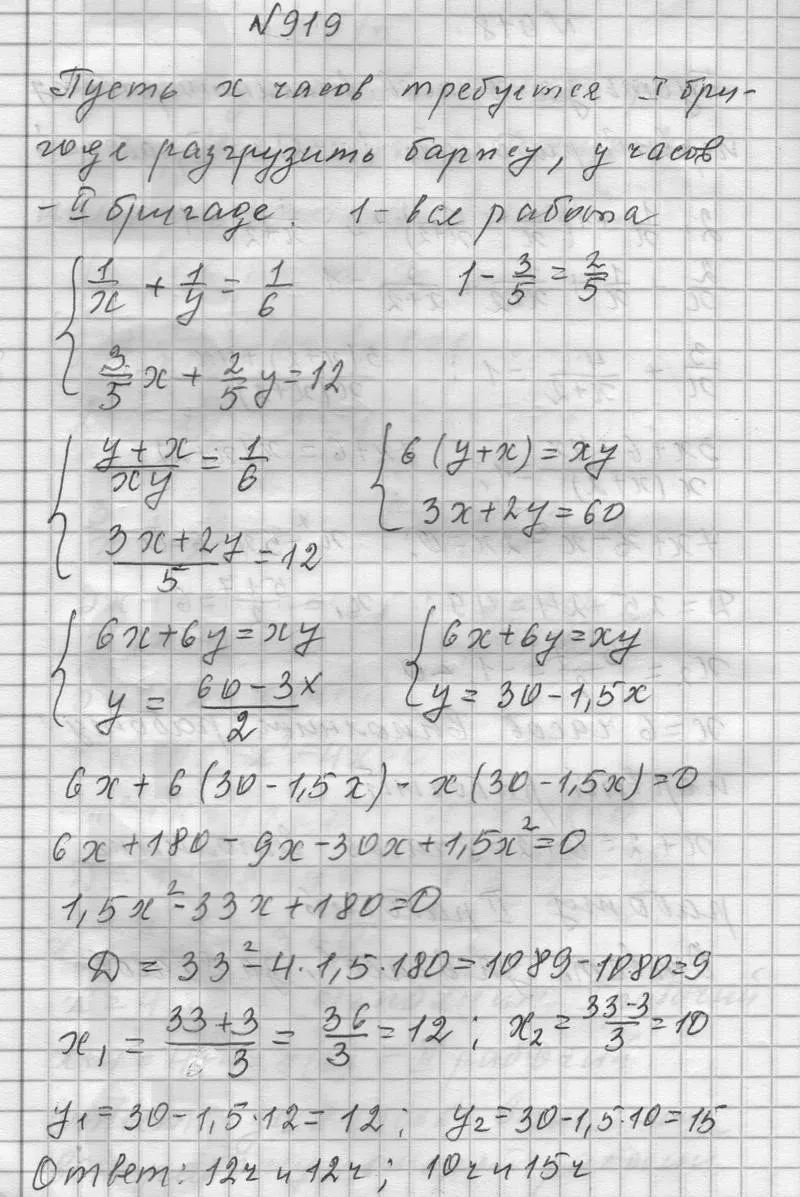 №919
Пусть x часов требуется I бри-
гаде разгрузить баржу, y часов
- II бригаде. 1 - вся работа
{ 1/x + 1/y = 1/6 1 - 3/5 = 2/5
3/5 x + 2/5 y = 12
{ (y+x)/xy = 1/6 { 6(y+x) = xy
(3x+2y)/5 = 12 3x+2y=60
{ 6x+6y=xy { 6x+6y=xy
y = (60-3x)/2 y = 30-1,5x
6x + 6(30-1,5x) - x(30-1,5x)=0
6x+180-9x-30x+1,5x²=0
1,5x²-33x+180=0
Д = 33²-4·1,5·180=1089-1080=9
x₁ = (33+3)/3 = 36/3 = 12; x₂ = (33-3)/3 = 10
y₁=30-1,5·12=12; y₂=30-1,5·10=15
Ответ: 12ч и 12ч; 10ч и 15ч